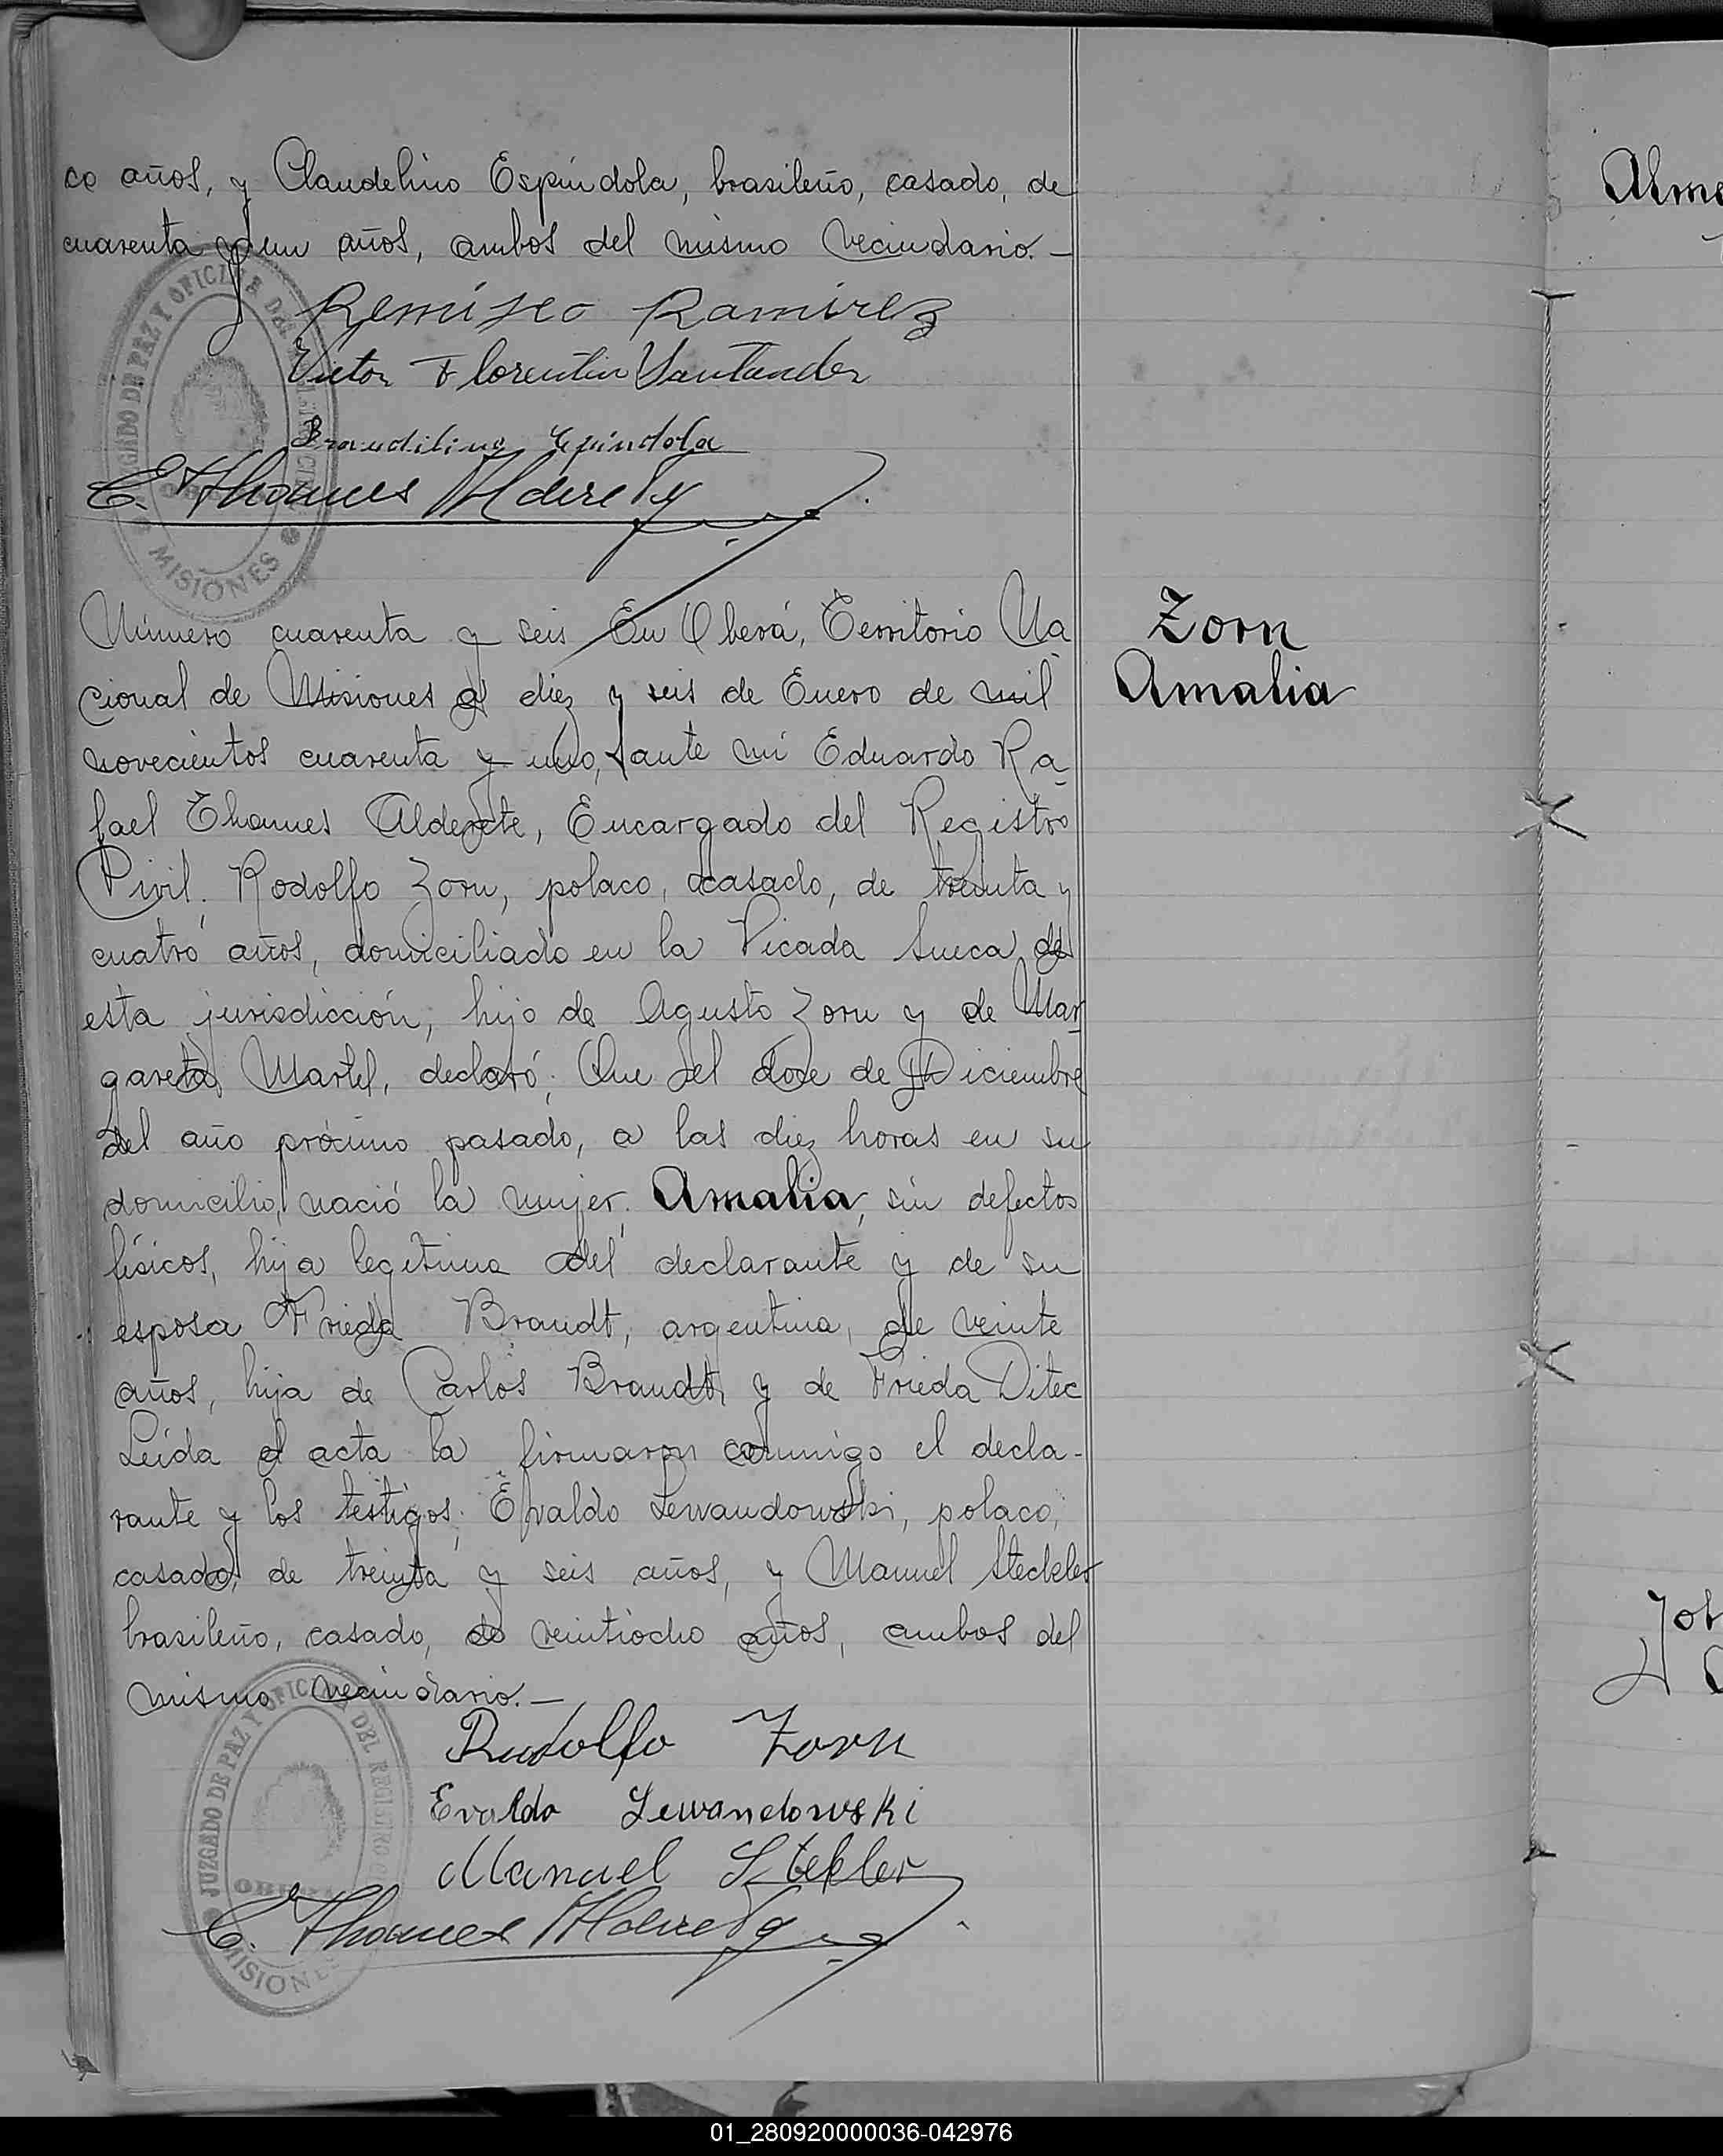 co años, y Claudelino Espíndola, brasileño, casado, de
cuarenta y un años, ambos del mismo vecindario.—
Remisio Ramirez
Victor Florentin Santander
Espindola
E. Thames Alderete
JUZGADO DE PAZ Y OFICINA DEL
MISIONES
Número cuarenta y seis En Oberá, Territorio Na
cional de Misiones a diez y seis de Enero de mil
novecientos cuarenta y uno, ante mi Eduardo Ra
fael Thames Alderete, Encargado del Registro
Civil. Rodolfo Zorn, polaco, casado, de treinta y
cuatro años, domiciliado en la Picada Sueca de
esta jurisdicción, hijo de Agusto Zorn y de Mar
gareta Martel, declaró: Que el doce de Diciembre
del año próximo pasado, a las diez horas en su
domicilio, nació la mujer: Amalia, sin defectos
físicos, hija legítima del declarante y de su
esposa Frieda Brandt, argentina, de veinte
años, hija de Carlos Brandt y de Frieda Ditec
Leída el acta la firmaron conmigo el decla-
rante y los testigos: Evaldo Lewandowski, polaco,
casado, de treinta y seis años, y Manuel Steckler
brasileño, casado, de veintiocho años, ambos del
mismo vecindario.—
Rudolfo Zorn
Evaldo Lewandowski
Manuel Stekler
E. Thames Alderete
JUZGADO DE PAZ Y OFICINA DEL REGISTRO
OBERA
MISIONES
Zorn
Amalia
Alme
01_280920000036-042976